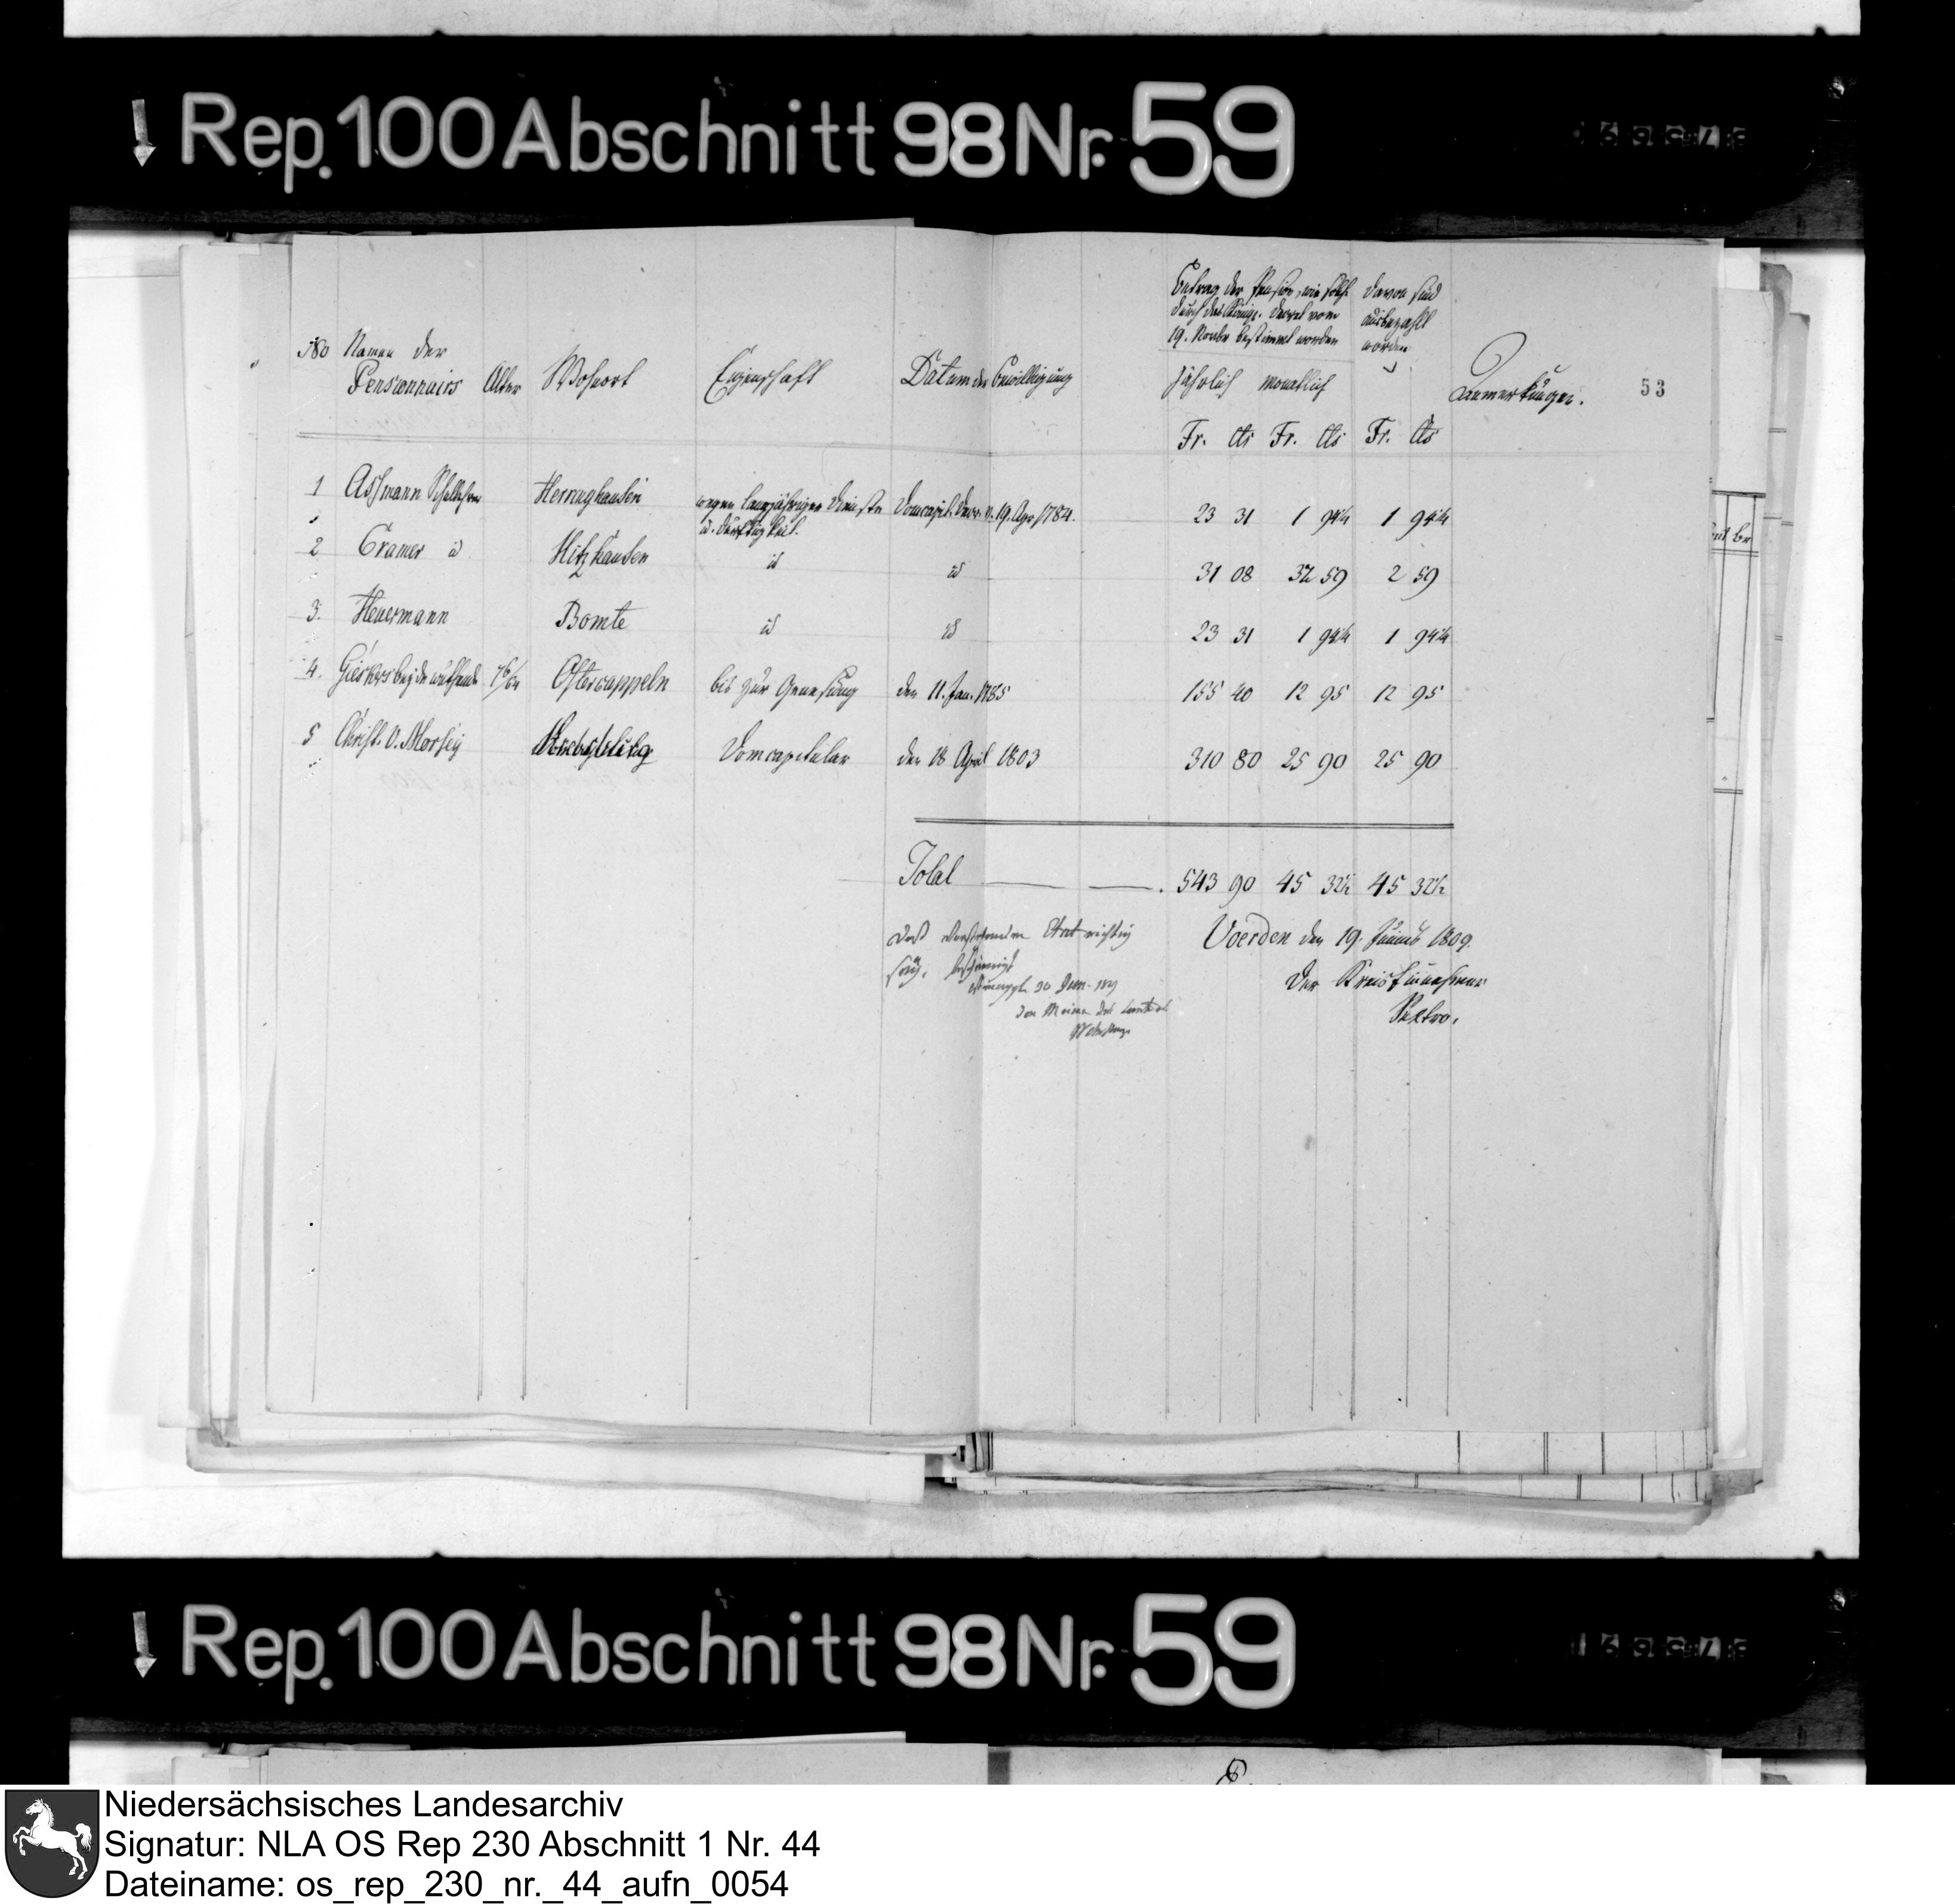 Rep. 100 Abschnitt 98 Nr. 59
Betrag der Pension, wie solche davon sind
durch das Königl. Decret vom ausbezahlt
19. Novbr bestimmt worden worden
No Namen der
Pensionnairs Alter Wohnort Eigenschaft Datum der Bewilligung jährlich monatlich Anmerkungen. 53
Fr. Cts Fr. Cts Fr. Cts
1 Assmann Herringhausen wegen langjähriger Dienste Domcapit. Decr. v. 19. Apr. 1784. 23 31 1 94¼ 1 94¼
u. Dürftigkeit.
2 Cramer id Hitzhausen id id 31 08 32 59 2 59
3. Heuermann Bomte id id 23 31 1 94¼ 1 94¼
4. Gieskers beyde 76/64 Ostercappeln bis zur Genesung den 11. Jan. 1785 155 40 12 95 12 95
5 Christ. v. Morsey Domcapitular den 18 April 1803 310 80 25 90 25 90
Total 543 90 45 32½ 45 32½
Daß vorstehender Etat richtig
sey, bescheinigt
Voerden den 19. 1809.
Der Kreiseinnehmer
Rep. 100 Abschnitt 98 Nr. 59
Niedersächsisches Landesarchiv
Signatur: NLA OS Rep 230 Abschnitt 1 Nr. 44
Dateiname: os_rep_230_nr._44_aufn_0054